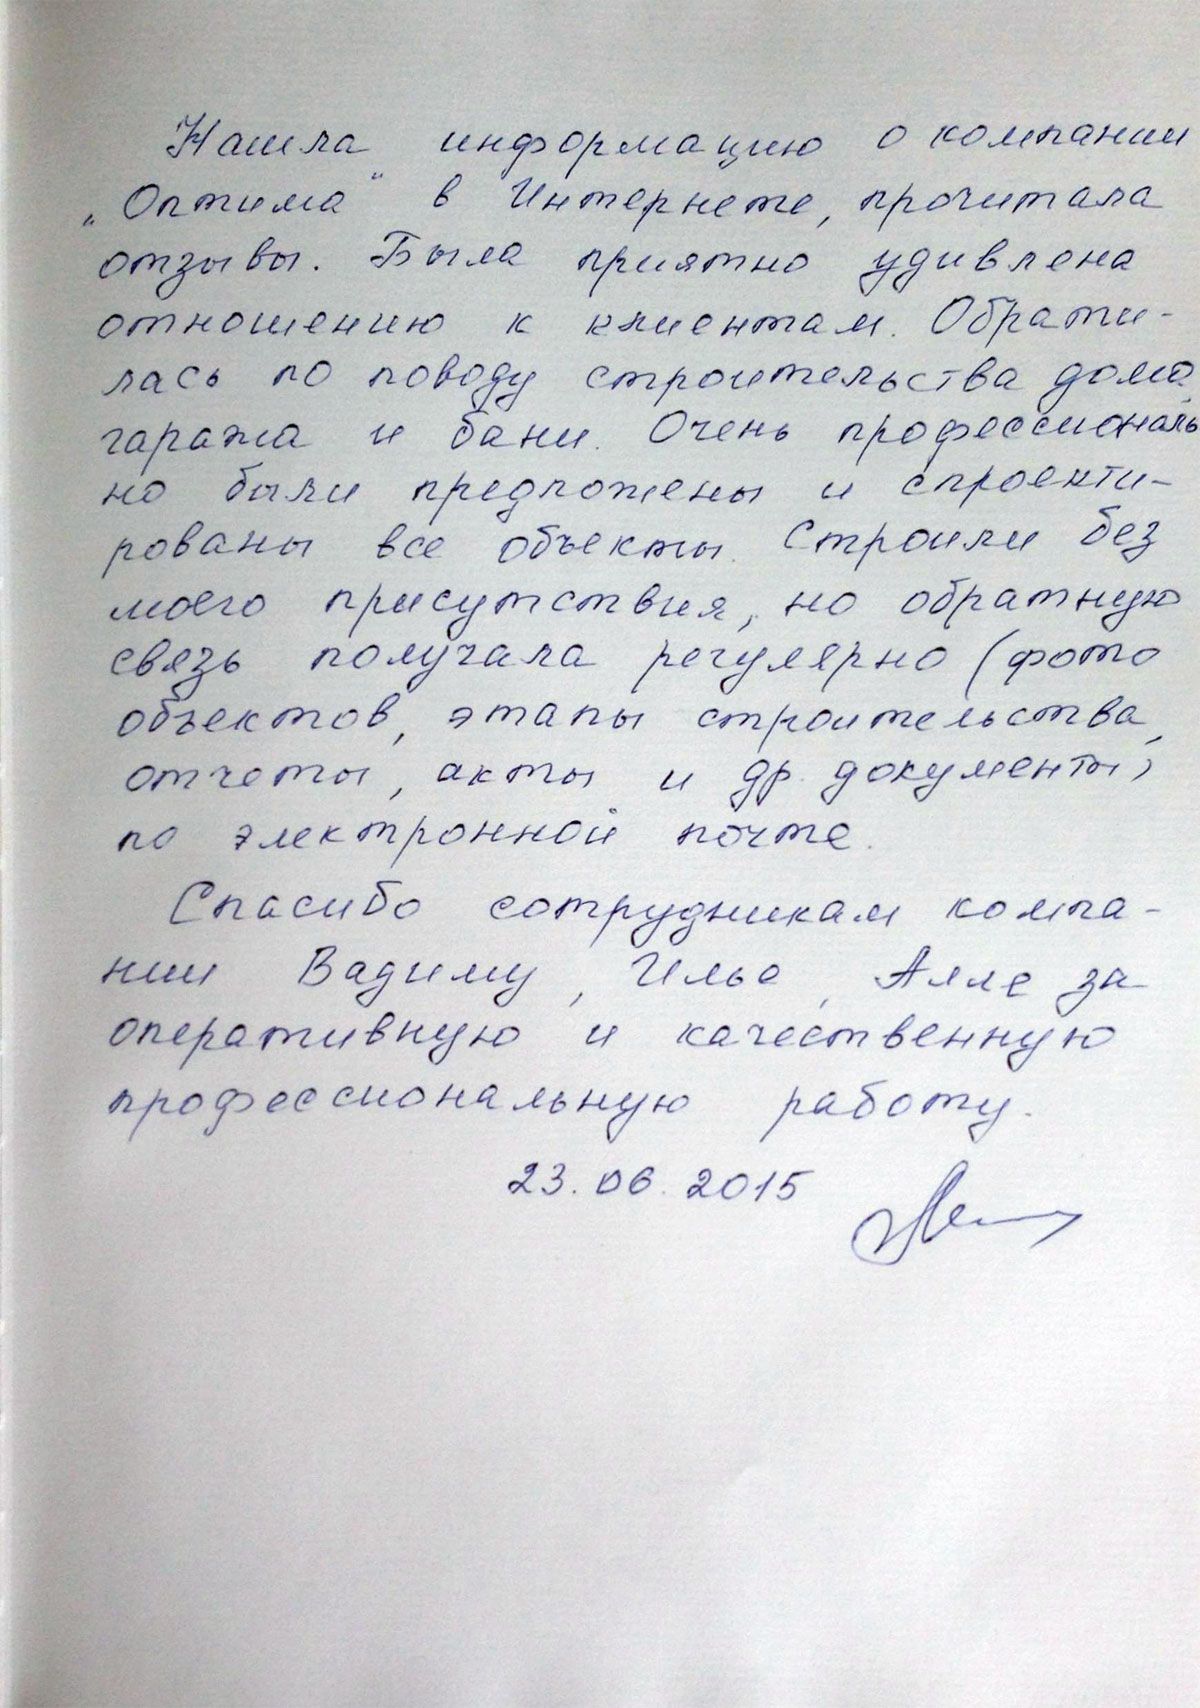 Нашла информацию о компании
„Оптима“ в Интернете, прочитала
отзывы. Была приятно удивлена
отношению к клиентам. Обрати-
лась по поводу строительства дома,
гаража и бани. Очень профессиональ
но были предложены и спроекти-
рованы все объекты. Строили без
моего присутствия, но обратную
связь получала регулярно (фото
объектов, этапы строительства,
отчеты, акты и др. документы)
по электронной почте.
Спасибо сотрудникам компа-
нии Вадиму, Илье, Алле за
оперативную и качественную
профессиональную работу.
23.06.2015